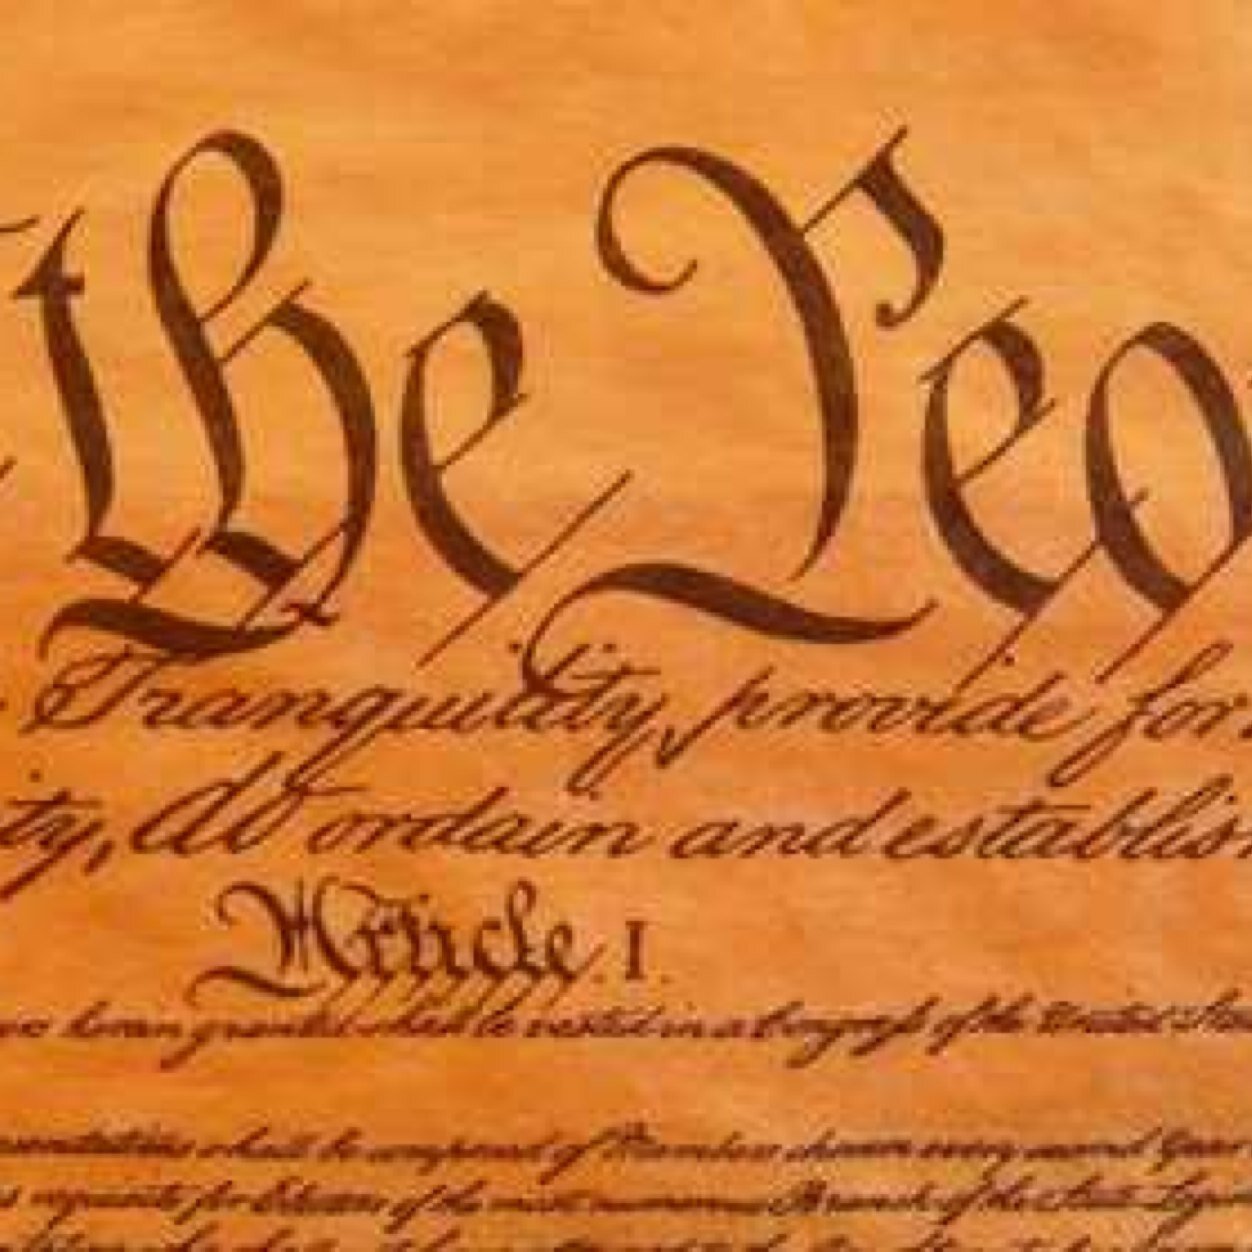 the Peo
Tranquility, provide for
ty, do ordain and establis
Article. I.
herein granted shall be vested in a Congress of the United Sta
sentatives shall be composed of Members chosen every second Year
requisite for Electors of the most numerous Branch of the State Legis